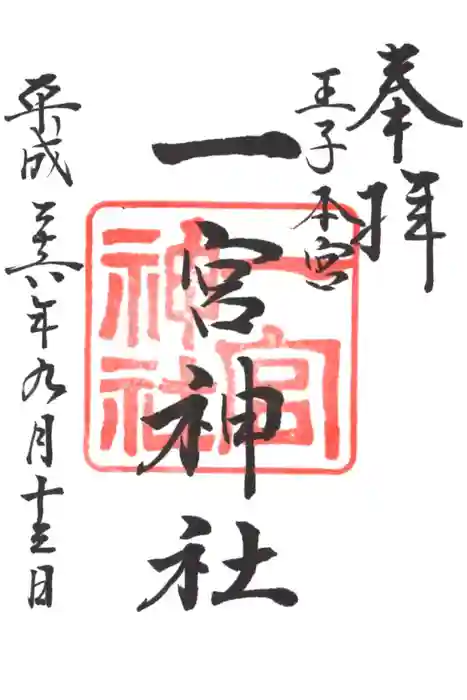 奉拝
王子本宮
一宮神社
平成二十六年九月十三日
一宮
神社